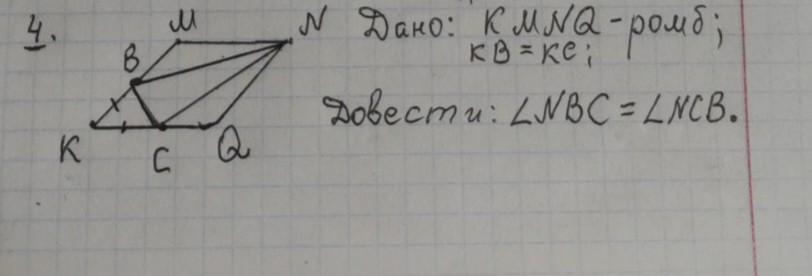 4.
Дано: KMNQ - ромб;
KB = KC;
Довести: ∠NBC = ∠NCB.
M
N
B
K
C
Q